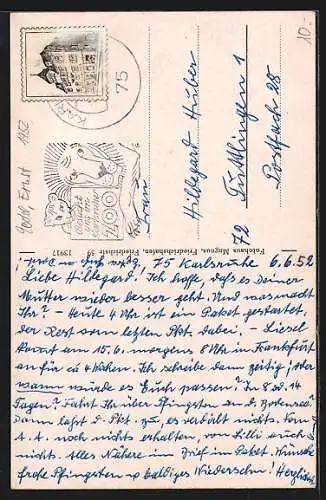 10.-
KARL
75
ZOO
Frau
Hildegard Huber
Tuttlingen 1
Postfach 28
72
Fotohaus Magnus, Friedrichshafen, Friedrichstr. 39
75 Karlsruhe 6.6.52
Liebe Hildegard! Ich hoffe, daß es Deiner
Mutter wieder besser geht. Und was macht
Ihr? - Heute 4 Uhr ist ein Paket gestartet,
der Rest vom letzten Pkt. dabei, - Liesel
kommt am 15.6. morgens 8 Uhr in Frankfurt
an für ca 4 Wochen. Ich schreibe dann zeitig; aber
wann würde es Euch passen? In 8 od. 14
Tagen? Fahrt Ihr über Pfingsten an d. Bodensee?
Dann laßt d. Pkt. zu, es verdirbt nichts. Vom
A. A. noch nichts erhalten, von Lilli auch
nichts. Alles Nähere im Brief im Paket. Wünsche
frohe Pfingsten u. baldiges Wiedersehn! Herzlichst